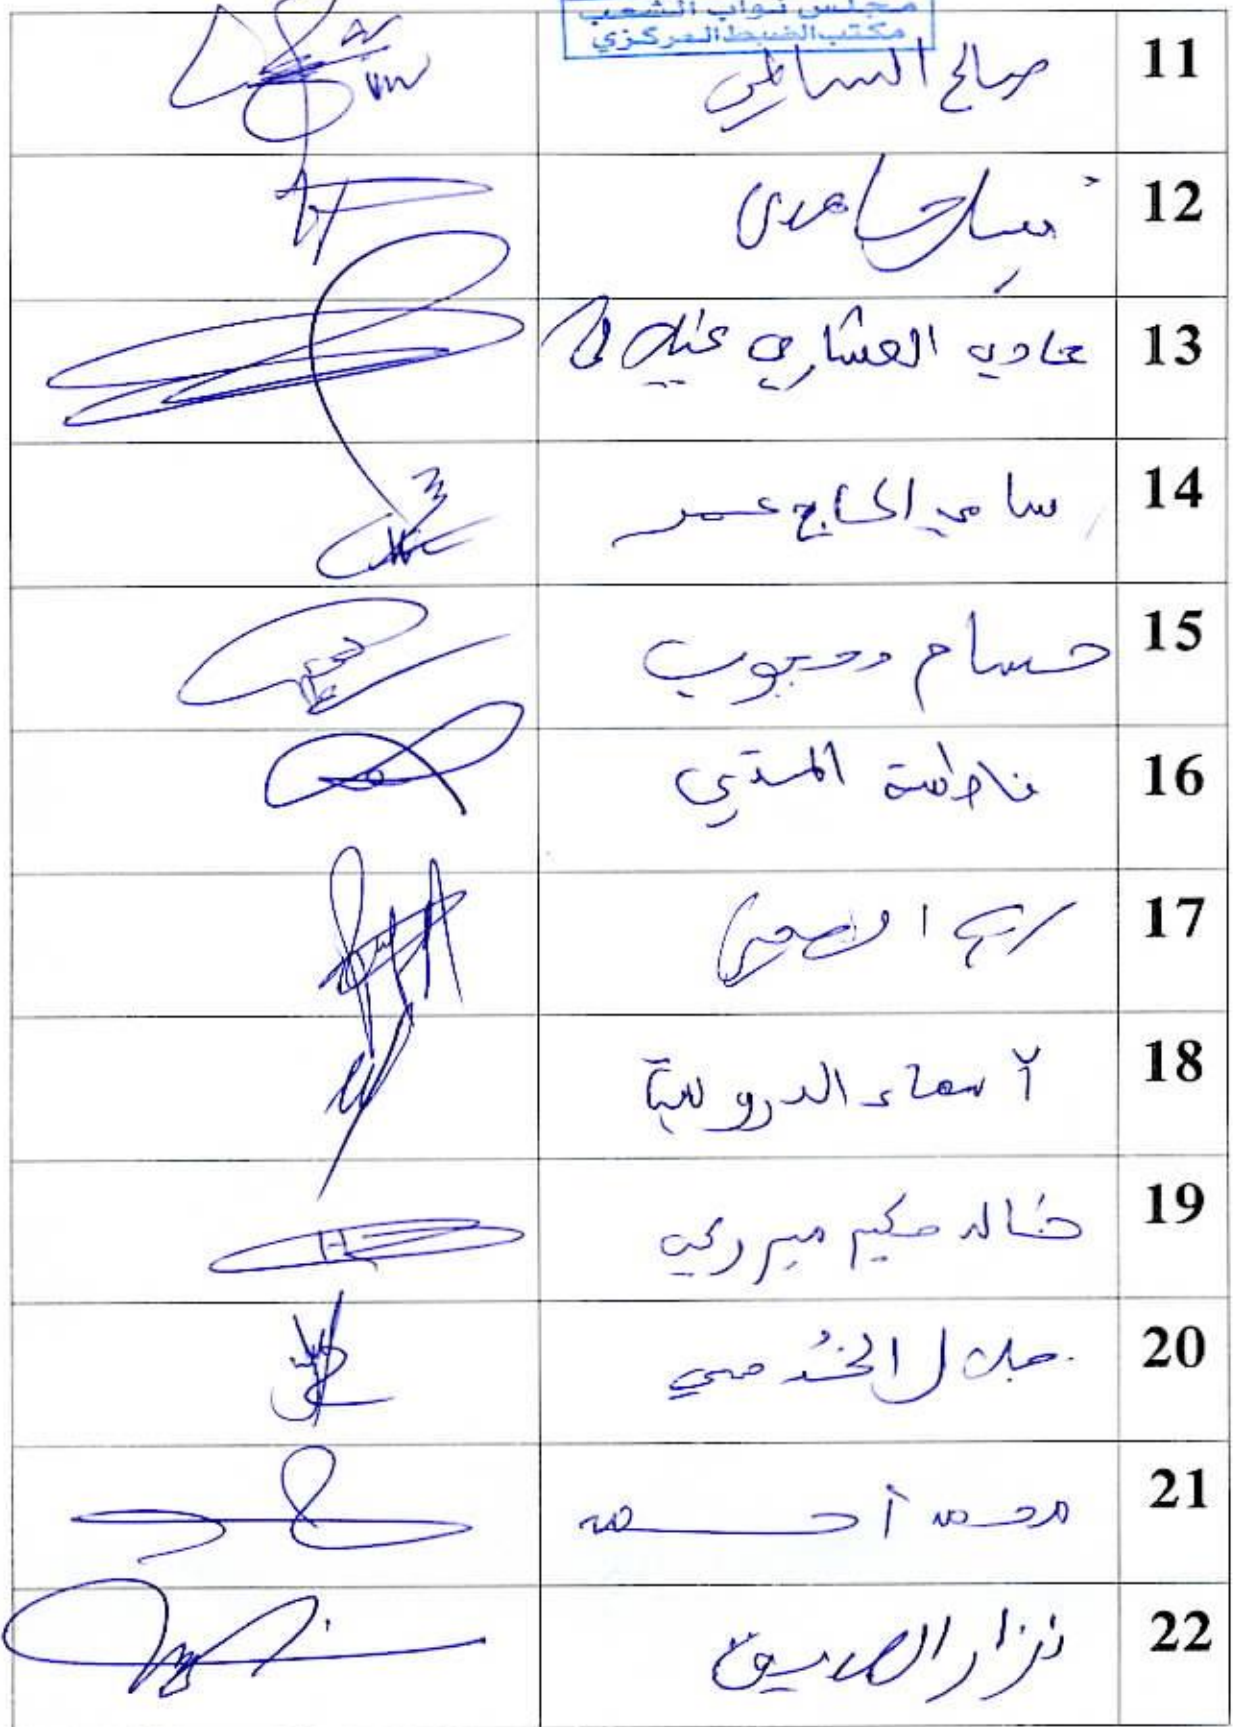 مجلس نواب الشعب
مكتب الضبط المركزي
11 صالح السالمي
12 نبيل حامدي
13 العشاري
14 سامي الحاج عمر
15 حسام محجوب
16 فاطمة المسدي
17
18 أسماء الدرويش
19 خالد حكيم مبروكي
20 جلال الخدمي
21 محمد أحمد
22 نزار الصديق